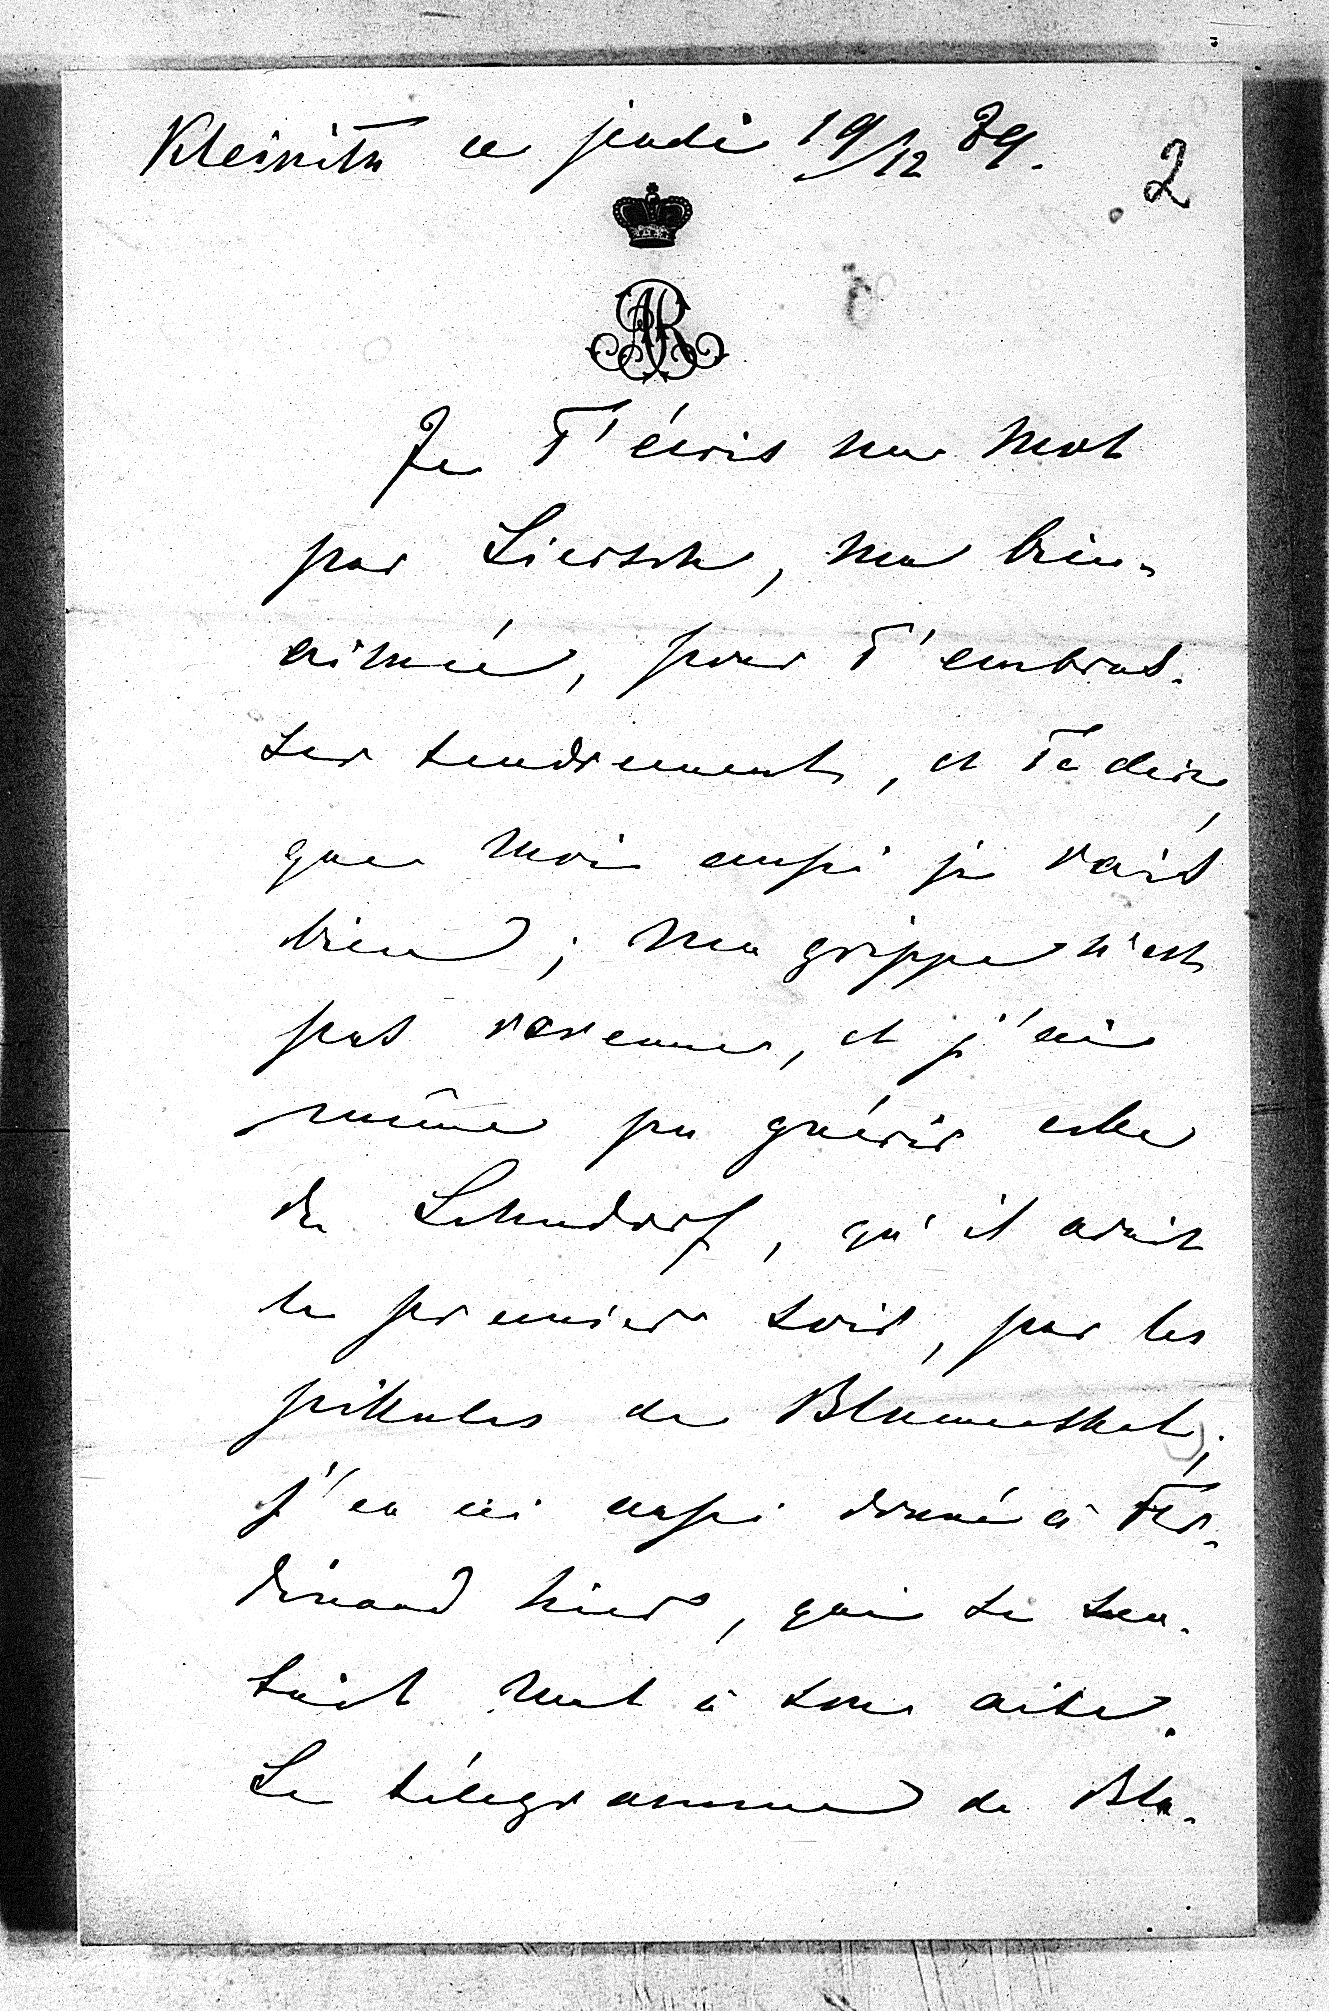 Kleinitz ce jeudi 19/12 89.
2
AR
Je T'écris un mot
par Liersch, ma bien-
aimée, pour T'embras-
ser tendrement, et Te dire,
que moi aussi je vais
bien; ma grippe n'est
pas revenue, et j'ai
même pu guérir celle
de Lehndorf, qu'il avait
le premier soir, par les
pillules de Blumenthal;
j'en ai aussi donné à Fer-
dinand hier, qui se sen-
tait mal à son aise.
Le télégramme de Bla-